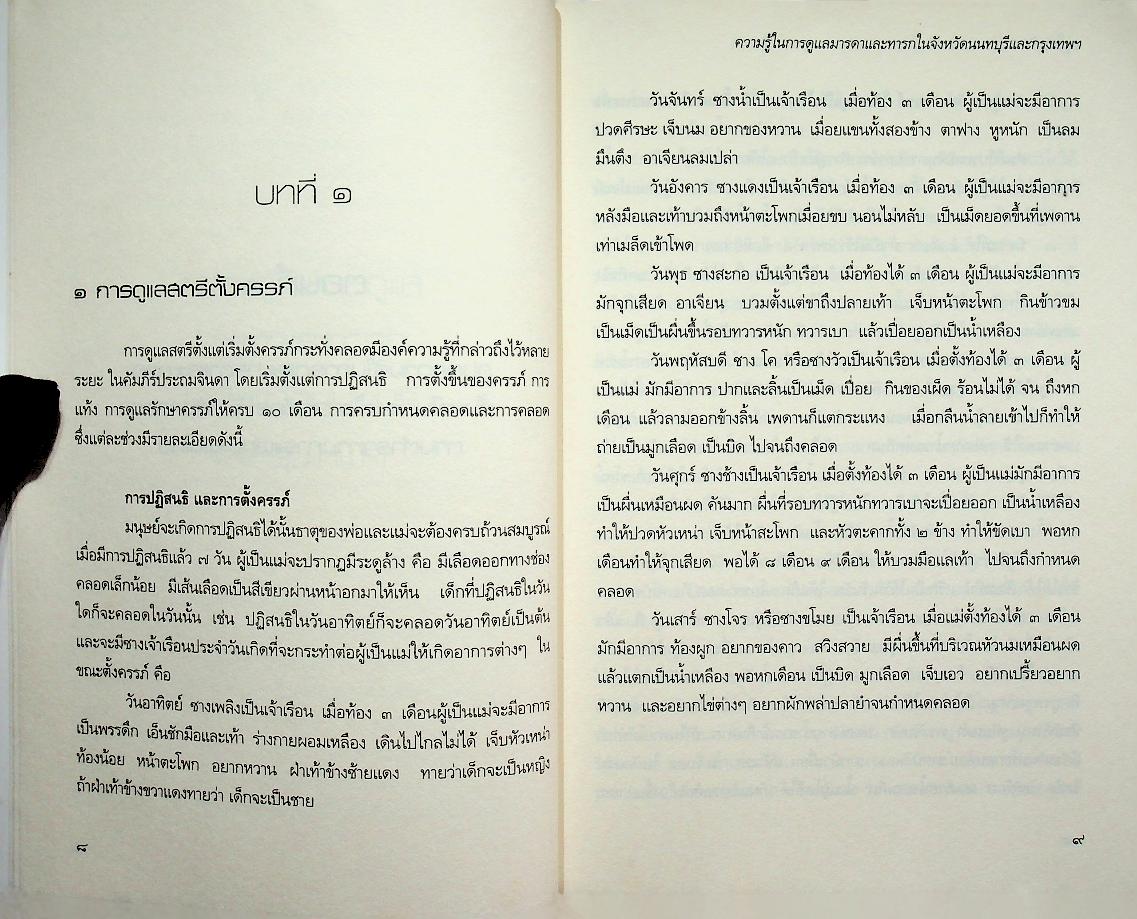 บทที่ ๑
๑ การดูแลสตรีตั้งครรภ์
การดูแลสตรีตั้งแต่เริ่มตั้งครรภ์กระทั่งคลอดมีองค์ความรู้ที่กล่าวถึงไว้หลาย
ระยะ ในคัมภีร์ประถมจินดา โดยเริ่มตั้งแต่การปฏิสนธิ การตั้งขึ้นของครรภ์ การ
แท้ง การดูแลรักษาครรภ์ให้ครบ ๑๐ เดือน การครบกำหนดคลอดและการคลอด
ซึ่งแต่ละช่วงมีรายละเอียดดังนี้
การปฏิสนธิ และการตั้งครรภ์
มนุษย์จะเกิดการปฏิสนธิได้นั้นธาตุของพ่อและแม่จะต้องครบถ้วนสมบูรณ์
เมื่อมีการปฏิสนธิแล้ว ๗ วัน ผู้เป็นแม่จะปรากฏมีระดูล้าง คือ มีเลือดออกทางช่อง
คลอดเล็กน้อย มีเส้นเลือดเป็นสีเขียวผ่านหน้าอกมาให้เห็น เด็กที่ปฏิสนธิในวัน
ใดก็จะคลอดในวันนั้น เช่น ปฏิสนธิในวันอาทิตย์ก็จะคลอดวันอาทิตย์เป็นต้น
และจะมีซางเจ้าเรือนประจำวันเกิดที่จะกระทำต่อผู้เป็นแม่ให้เกิดอาการต่างๆ ใน
ขณะตั้งครรภ์ คือ
วันอาทิตย์ ซางเพลิงเป็นเจ้าเรือน เมื่อท้อง ๓ เดือนผู้เป็นแม่จะมีอาการ
เป็นพรรดึก เอ็นชักมือและเท้า ร่างกายผอมเหลือง เดินไปไกลไม่ได้ เจ็บหัวเหน่า
ท้องน้อย หน้าตะโพก อยากหวาน ฝ่าเท้าข้างซ้ายแดง ทายว่าเด็กจะเป็นหญิง
ถ้าฝ่าเท้าข้างขวาแดงทายว่า เด็กจะเป็นชาย
๘
ความรู้ในการดูแลมารดาและทารกในจังหวัดนนทบุรีและกรุงเทพฯ
วันจันทร์ ซางน้ำเป็นเจ้าเรือน เมื่อท้อง ๓ เดือน ผู้เป็นแม่จะมีอาการ
ปวดศีรษะ เจ็บนม อยากของหวาน เมื่อยแขนทั้งสองข้าง ตาฟาง หูหนัก เป็นลม
มึนตึง อาเจียนลมเปล่า
วันอังคาร ซางแดงเป็นเจ้าเรือน เมื่อท้อง ๓ เดือน ผู้เป็นแม่จะมีอาการ
หลังมือและเท้าบวมถึงหน้าตะโพกเมื่อยขบ นอนไม่หลับ เป็นเม็ดยอดขึ้นที่เพดาน
เท่าเมล็ดเข้าโพด
วันพุธ ซางสะกอ เป็นเจ้าเรือน เมื่อท้องได้ ๓ เดือน ผู้เป็นแม่จะมีอาการ
มักจุกเสียด อาเจียน บวมตั้งแต่ขาถึงปลายเท้า เจ็บหน้าตะโพก กินข้าวขม
เป็นเม็ดเป็นผื่นขึ้นรอบทวารหนัก ทวารเบา แล้วเปื่อยออกเป็นน้ำเหลือง
วันพฤหัสบดี ซาง โค หรือซางวัวเป็นเจ้าเรือน เมื่อตั้งท้องได้ ๓ เดือน ผู้
เป็นแม่ มักมีอาการ ปากและลิ้นเป็นเม็ด เปื่อย กินของเผ็ด ร้อนไม่ได้ จน ถึงหก
เดือน แล้วลามออกข้างลิ้น เพดานก็แตกระแหง เมื่อกลืนน้ำลายเข้าไปก็ทำให้
ถ่ายเป็นมูกเลือด เป็นบิด ไปจนถึงคลอด
วันศุกร์ ซางช้างเป็นเจ้าเรือน เมื่อตั้งท้องได้ ๓ เดือน ผู้เป็นแม่มักมีอาการ
เป็นผื่นเหมือนผด คันมาก ผื่นที่รอบทวารหนักทวารเบาจะเปื่อยออก เป็นน้ำเหลือง
ทำให้ปวดหัวเหน่า เจ็บหน้าสะโพก และหัวตะคากทั้ง ๒ ข้าง ทำให้ขัดเบา พอหก
เดือนทำให้จุกเสียด พอได้ ๘ เดือน ๙ เดือน ให้บวมมือแลเท้า ไปจนถึงกำหนด
คลอด
วันเสาร์ ซางโจร หรือซางขโมย เป็นเจ้าเรือน เมื่อแม่ตั้งท้องได้ ๓ เดือน
มักมีอาการ ท้องผูก อยากของคาว สวิงสวาย มีผื่นขึ้นที่บริเวณหัวนมเหมือนผด
แล้วแตกเป็นน้ำเหลือง พอหกเดือน เป็นบิด มูกเลือด เจ็บเอว อยากเปรี้ยวอยาก
หวาน และอยากไข่ต่างๆ อยากผักพล่าปลายำจนกำหนดคลอด
๙